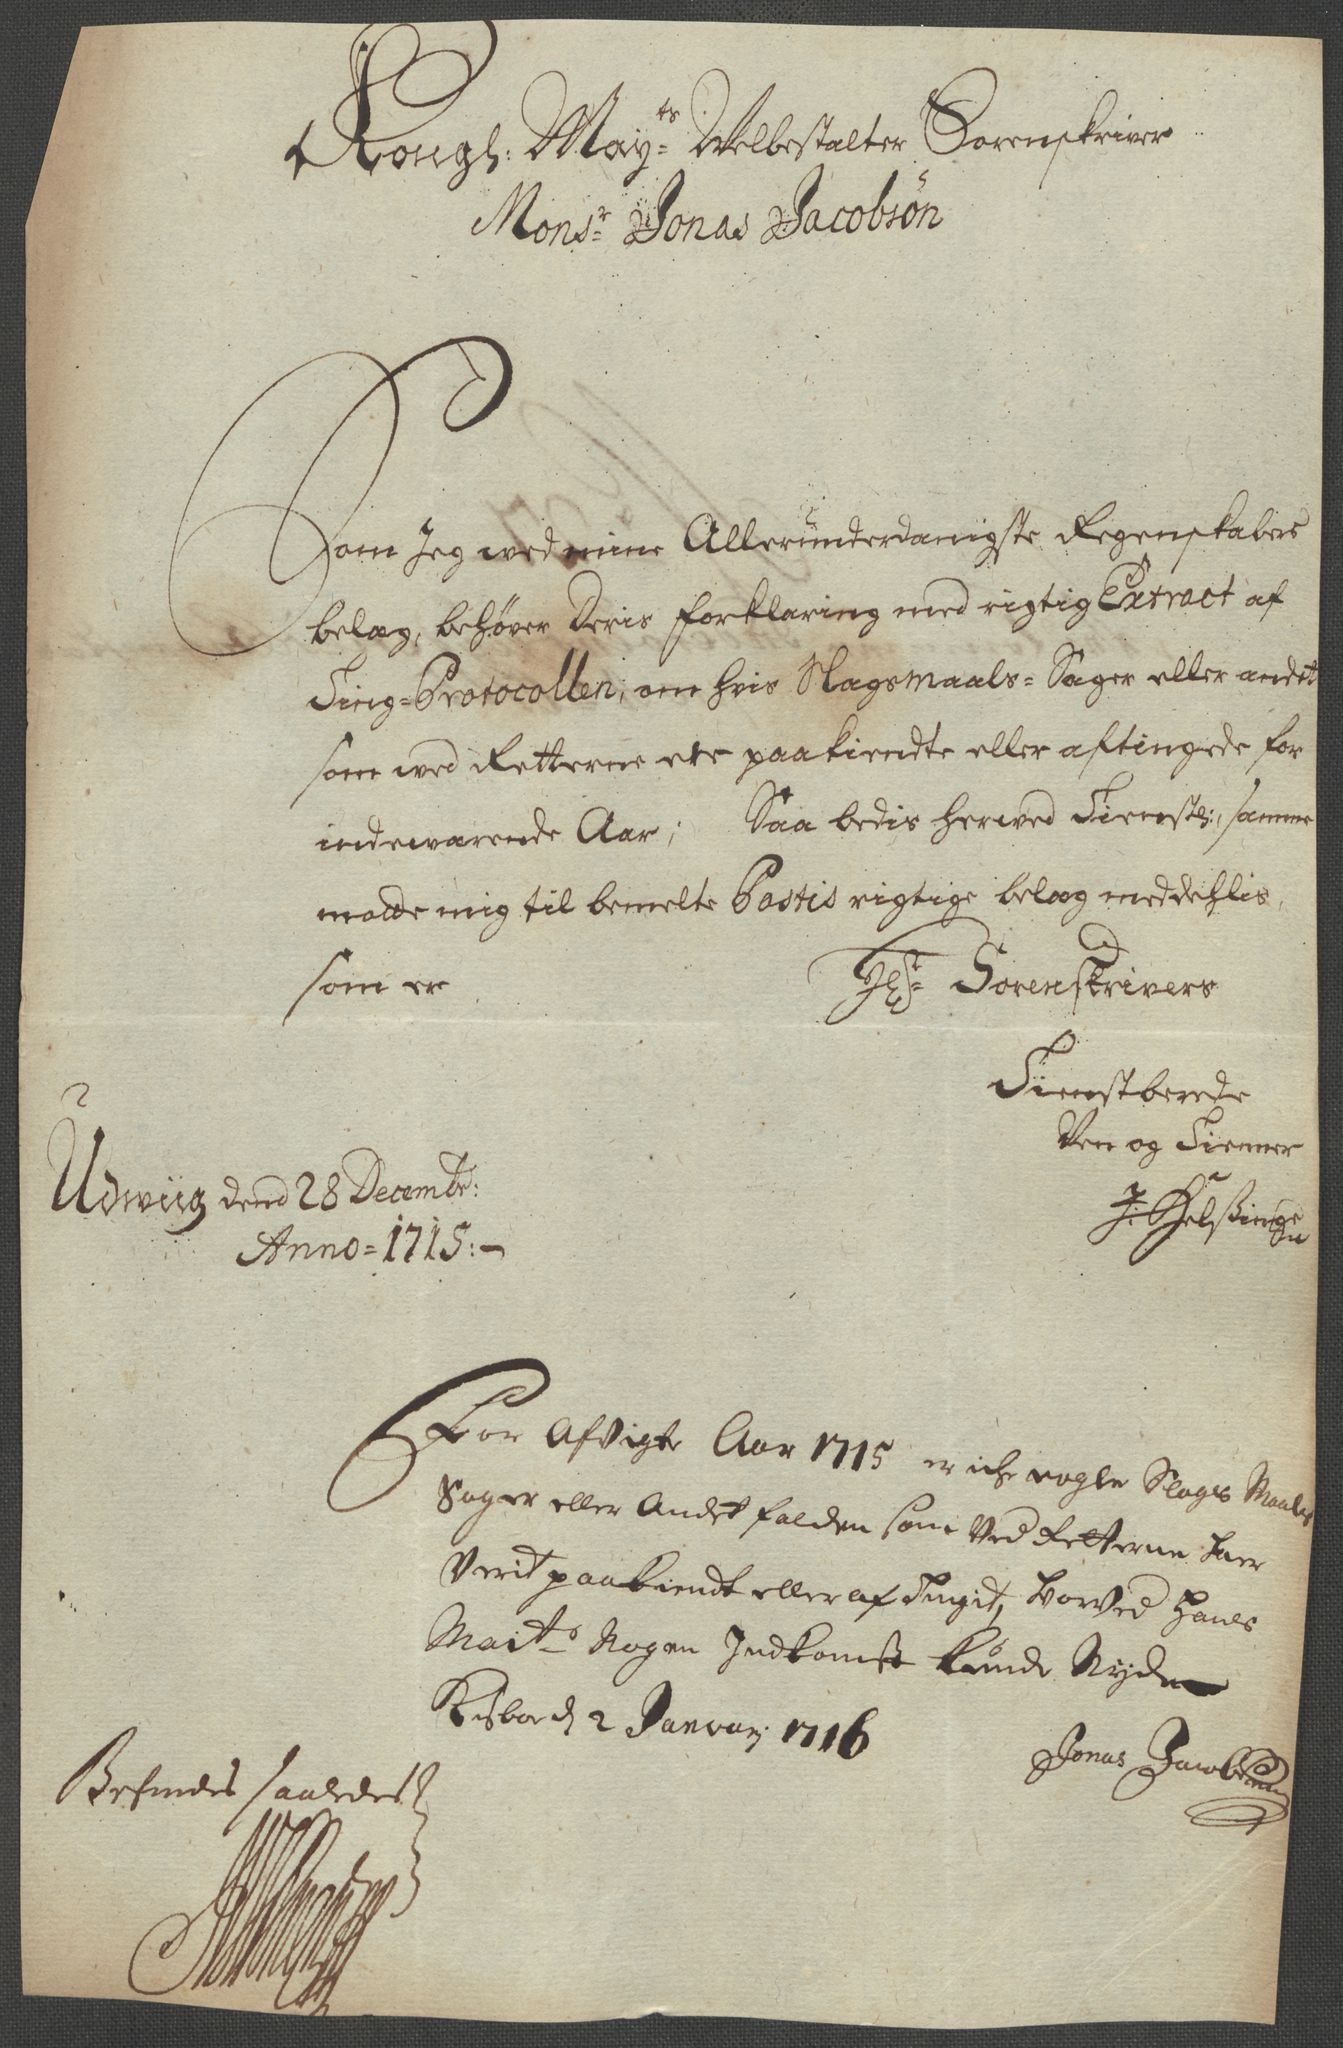 Kongl: May:ts Welbestalter Sorenskriver
Mons:r Jonas Jacobsøn
Som Jeg wed mine Allerunderdanigste Regenskabers
belæg, behøver Deris forklaring med rigtig Extract af
Ting-Protocollen, om hvis Slagsmaals-Sager eller andet
som wed Retterne ere paakiendte eller aftingede for
indewærende Aar; Saa bedis herwed Tienstl:, samme
motte mig til bemelte Postis rigtige belæg meddehlis,
som er Sorenskrivers
Tienstberede
Ven og Tienner
Udwiig dend 28 Decembr:
Anno=1715:
For Afvigte Aar 1715 er iche nogle Slags Maals
Sager eller Andet falden som Ved Retterne haer
Verit paakiendt eller af Tingit, hvorVed Hans
Mait:s Nogen Indkomst kunde Nyde
d 2 Januarj 1716
Jonas Jacobsøn
Befindes saaledes